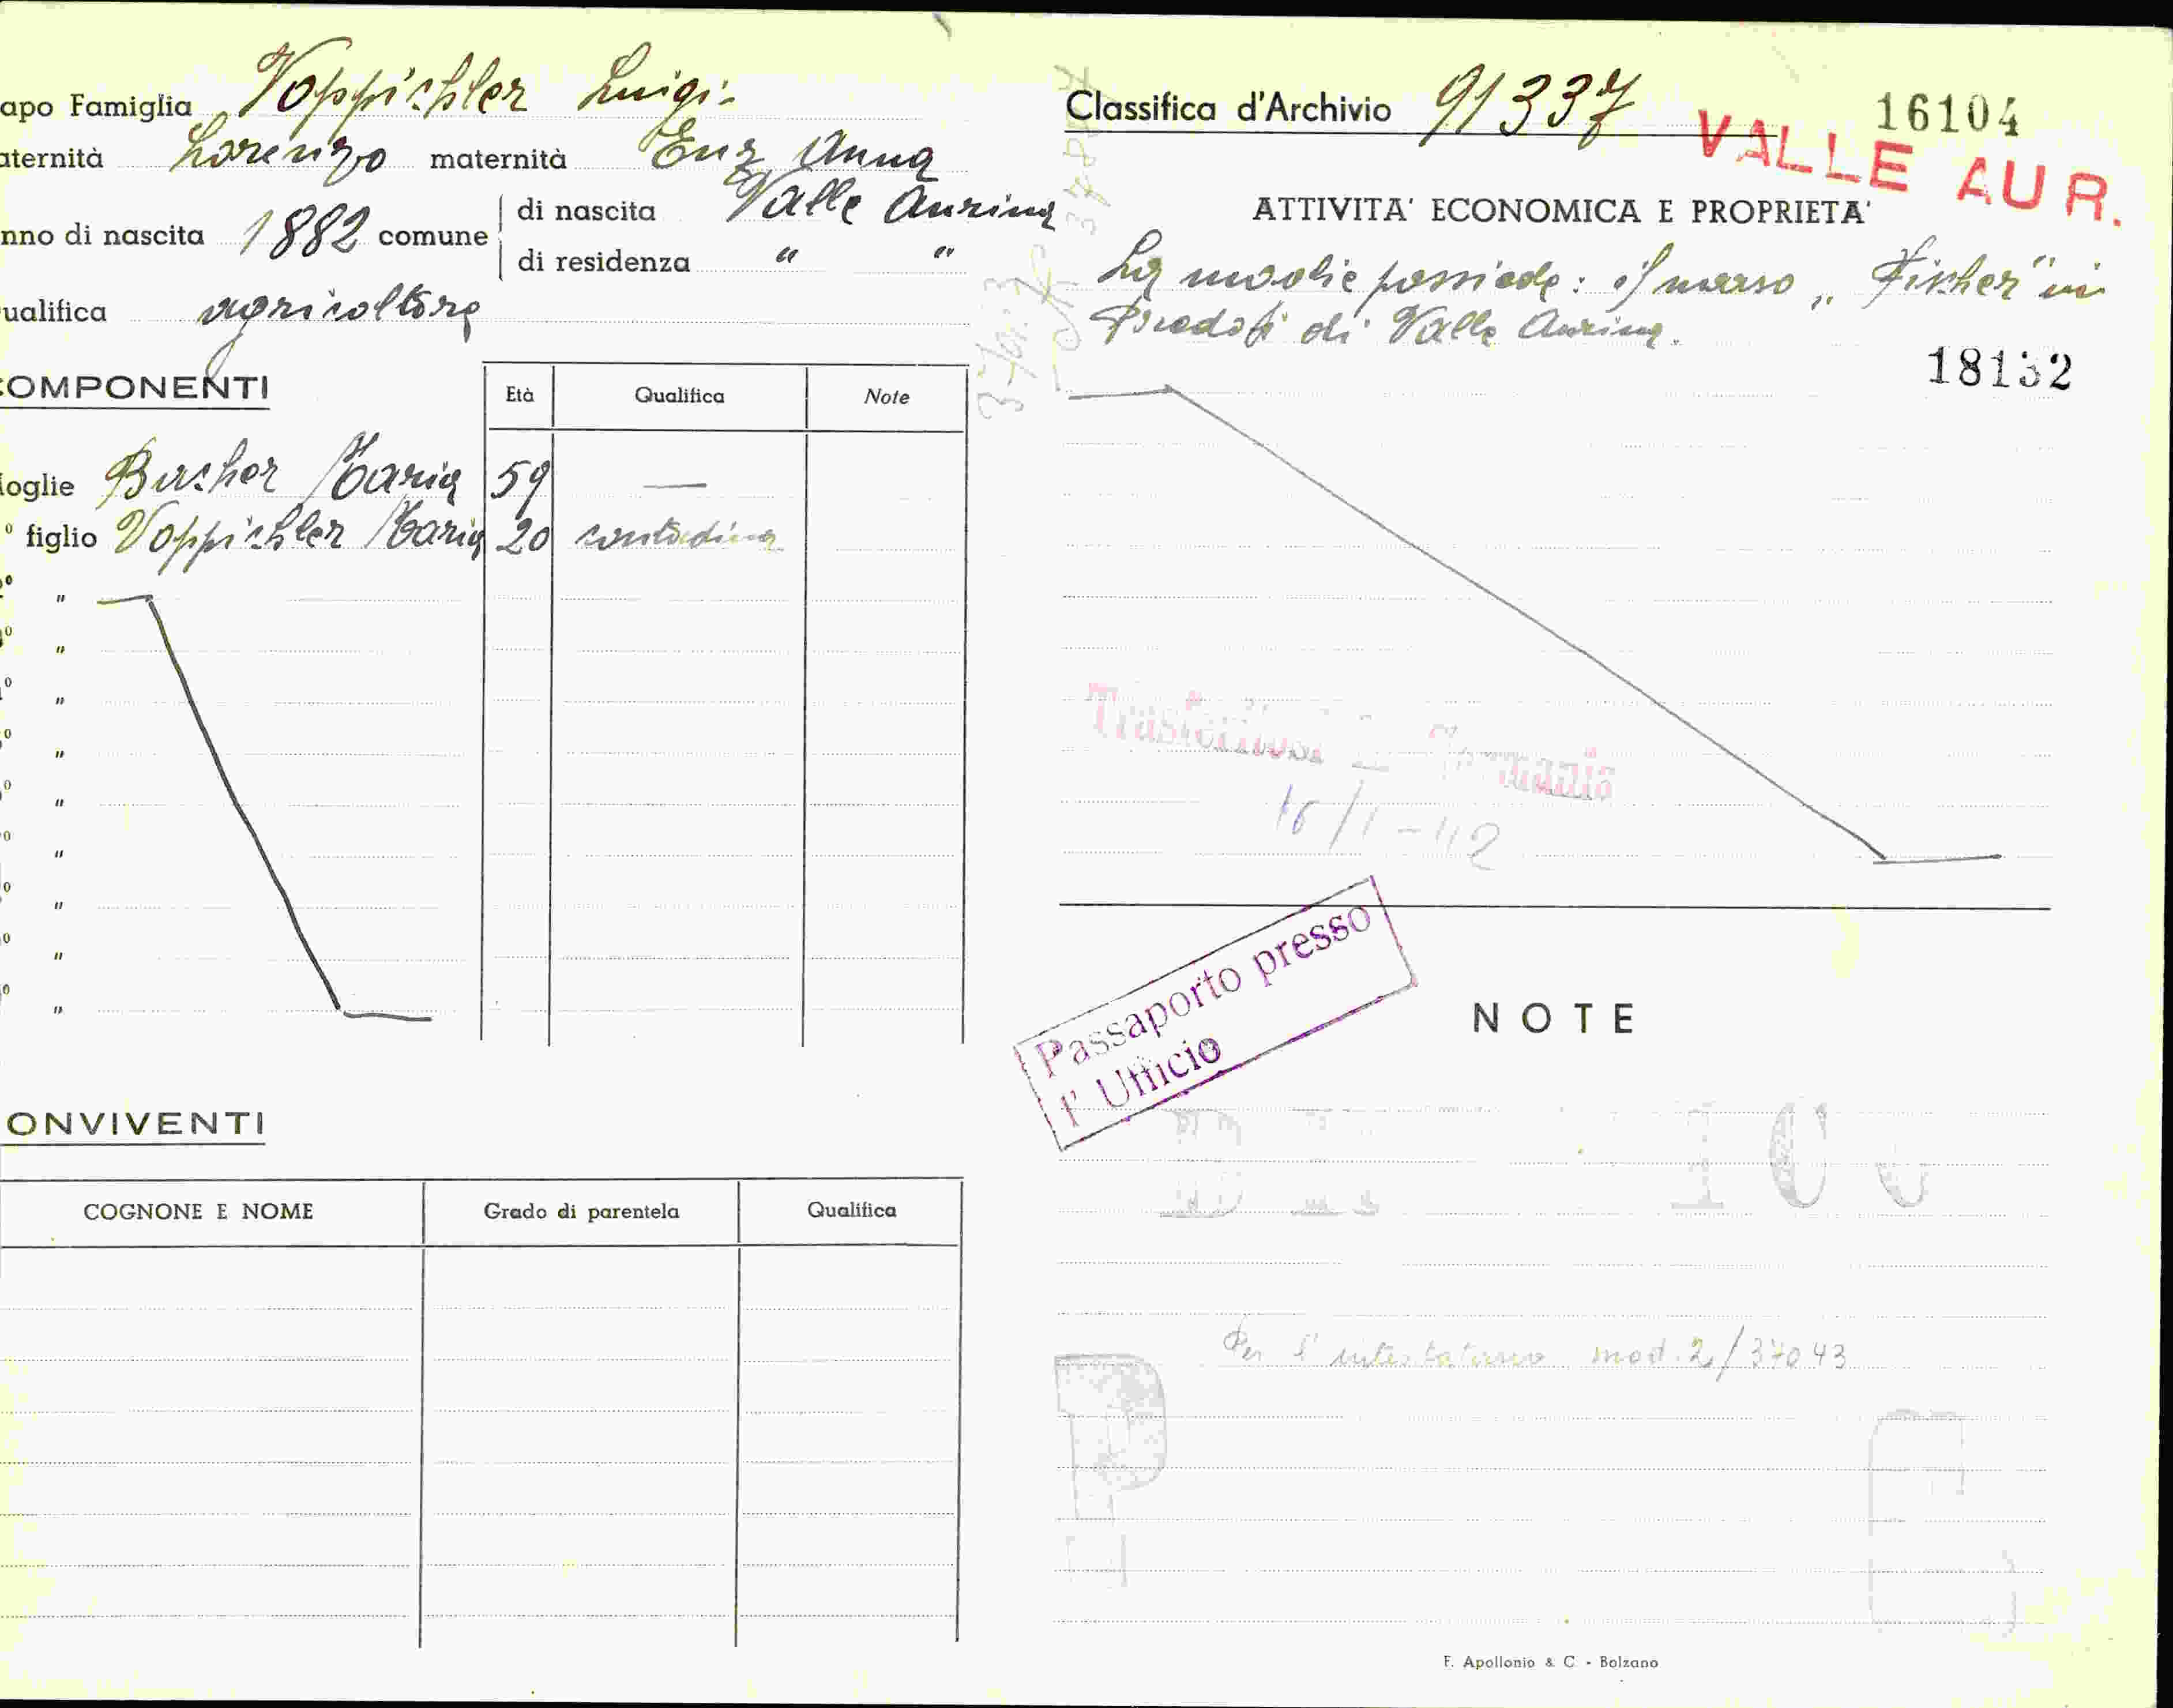 apo Famiglia Voppichler Luigi
aternità Lorenzo maternità Enz Anna
nno di nascita 1882 comune di nascita Valle Aurina
di residenza " "
ualifica agricoltore
COMPONENTI
Età Qualifica Note
oglie Bacher Maria 59 —
° figlio Voppichler Maria 20 contadina
° "
° "
° "
° "
° "
° "
° "
° "
° "
ONVIVENTI
COGNONE E NOME Grado di parentela Qualifica
Classifica d'Archivio 91337
16104
VALLE AUR.
ATTIVITA' ECONOMICA E PROPRIETA'
La moglie possiede: il maso „Fischer" in
Predoi di Valle Aurina.
18132
Trasferitosi in Germania
16/1-42
Passaporto presso
l'Ufficio
NOTE
Per l'intestatario mod. 2/37043
F. Apollonio & C. - Bolzano